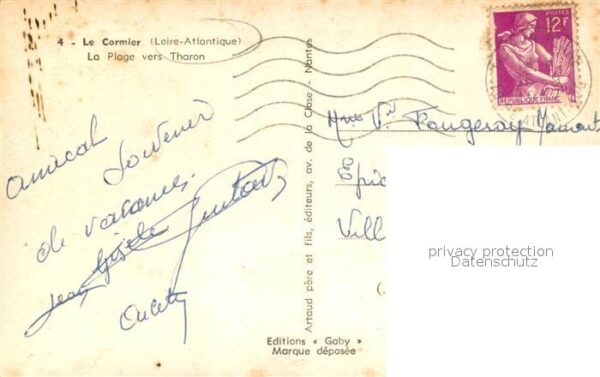 4 - Le Cormier (Loire-Atlantique)
La Plage vers Tharon
POSTES
12F
REPUBLIQUE FRANÇAISE
Amical Souvenir
de vacances.
Jean Gisele
Mme Vve Fougeray
Epi
Vill
privacy protection
Datenschutz
Artaud père et fils, éditeurs, av. de la Close - Nantes
Editions « Gaby »
Marque déposée